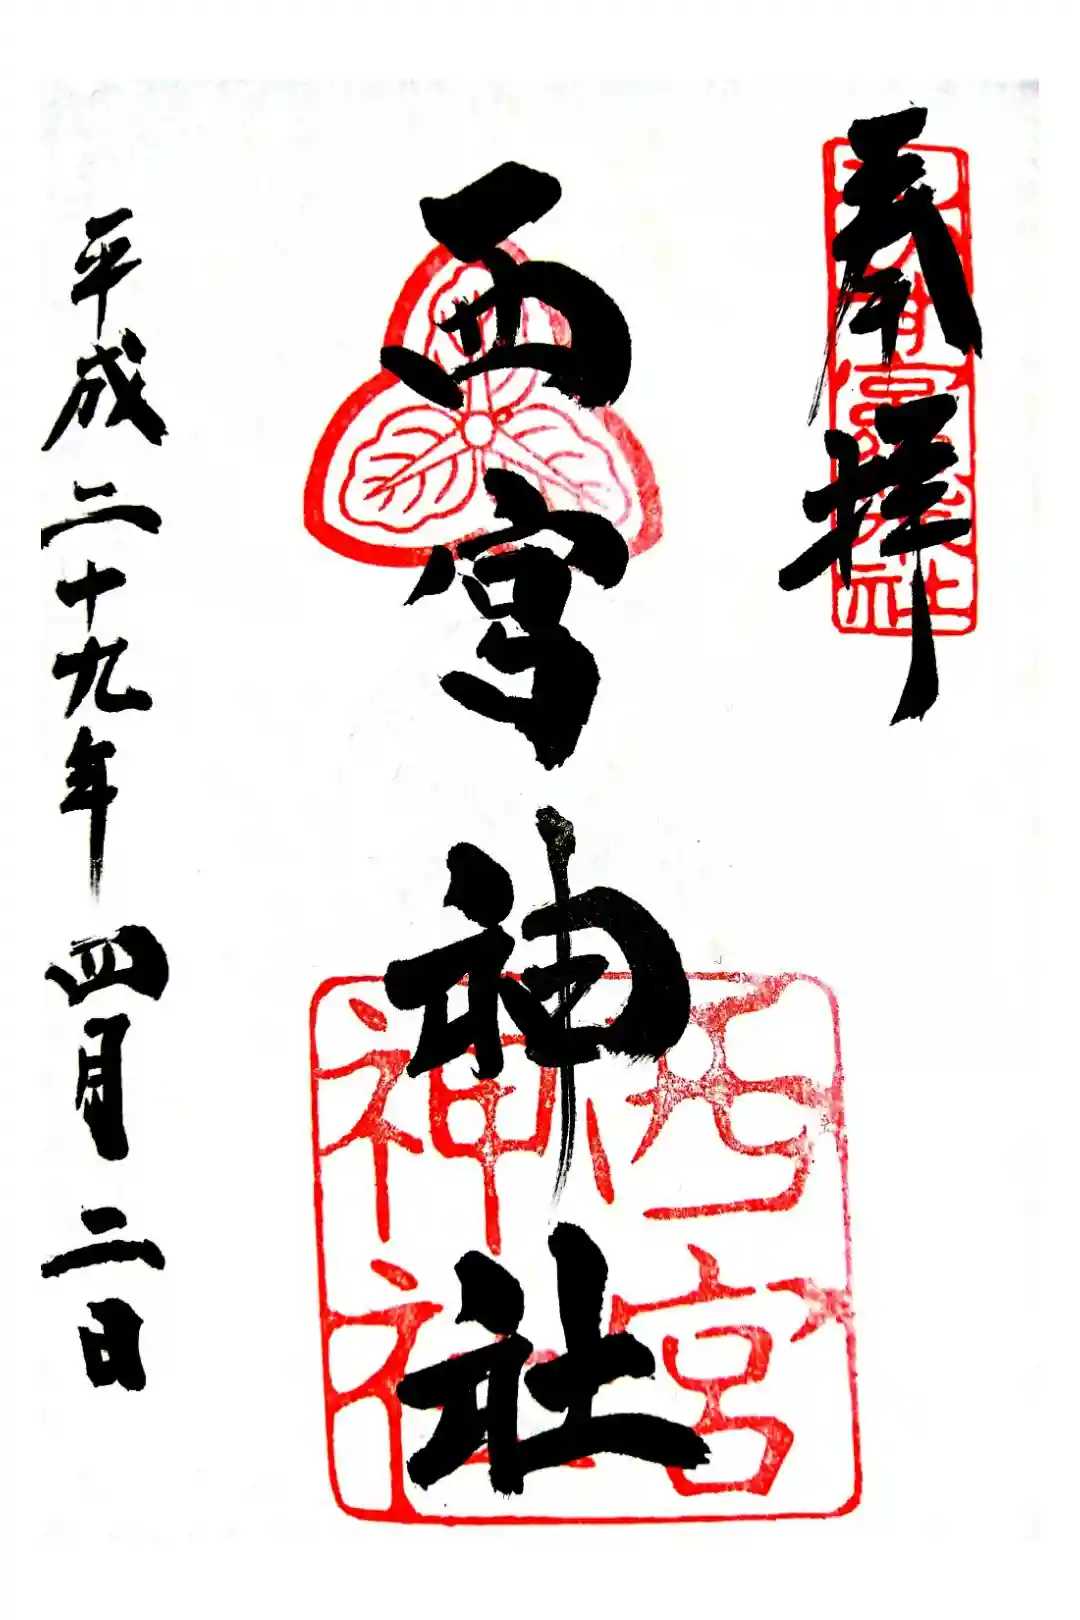 奉拝
西宮神社
西宮神社
平成二十九年四月二日